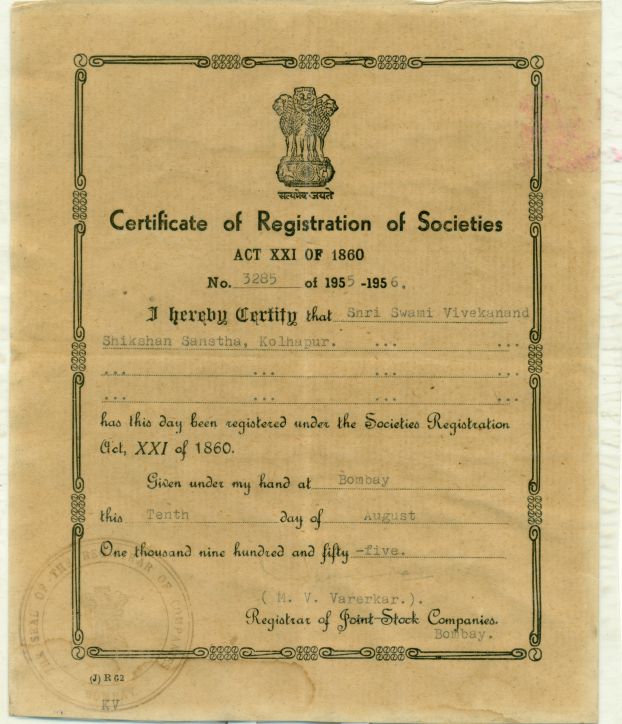 सत्यमेव जयते
Certificate of Registration of Societies
ACT XXI OF 1860
No. 3285 of 1955-1956.
I hereby Certify that Shri Swami Vivekanand
Shikshan Sanstha, Kolhapur. ... ...
... ... ... ...
... ... ... ...
has this day been registered under the Societies Registration
Act, XXI of 1860.
Given under my hand at Bombay
this Tenth day of August
One thousand nine hundred and fifty -five.
( M. V. Varerkar.).
Registrar of Joint Stock Companies.
Bombay.
SEAL OF THE REGISTRAR OF COMPANIES
(J) R 62
KV